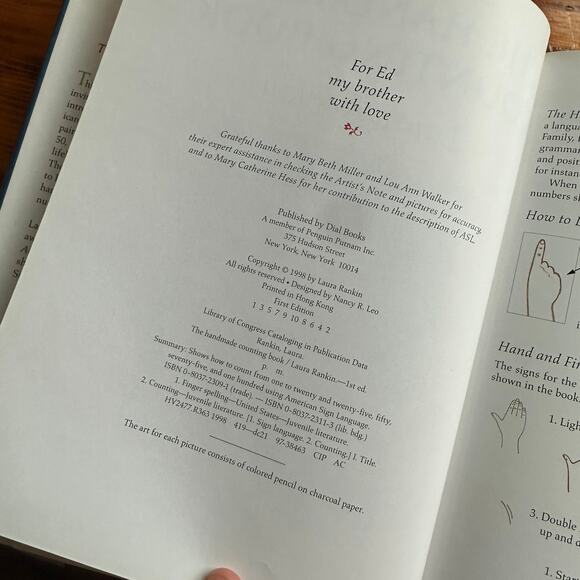 For Ed
my brother
with love
Grateful thanks to Mary Beth Miller and Lou Ann Walker for
their expert assistance in checking the Artist's Note and pictures for accuracy,
and to Mary Catherine Hess for her contribution to the description of ASL.
Published by Dial Books
A member of Penguin Putnam Inc.
375 Hudson Street
New York, New York 10014
Copyright © 1998 by Laura Rankin
All rights reserved • Designed by Nancy R. Leo
Printed in Hong Kong
First Edition
1 3 5 7 9 10 8 6 4 2
Library of Congress Cataloging in Publication Data
Rankin, Laura.
The handmade counting book / Laura Rankin.—1st ed.
p. m.
Summary: Shows how to count from one to twenty and twenty-five, fifty,
seventy-five, and one hundred using American Sign Language.
ISBN 0-8037-2309-1 (trade). — ISBN 0-8037-2311-3 (lib. bdg.)
1. Finger spelling—United States—Juvenile literature.
2. Counting—Juvenile literature. [1. Sign language. 2. Counting.] I. Title.
HV2477.R363 1998 419—dc21 97-38463 CIP AC
The art for each picture consists of colored pencil on charcoal paper.
The H
a langua
Family, 
grammar
and posit
for instan
When
numbers s
How to
Hand and Fin
The signs for the
shown in the book.
1. Ligh
3. Double
up and d
1. Star